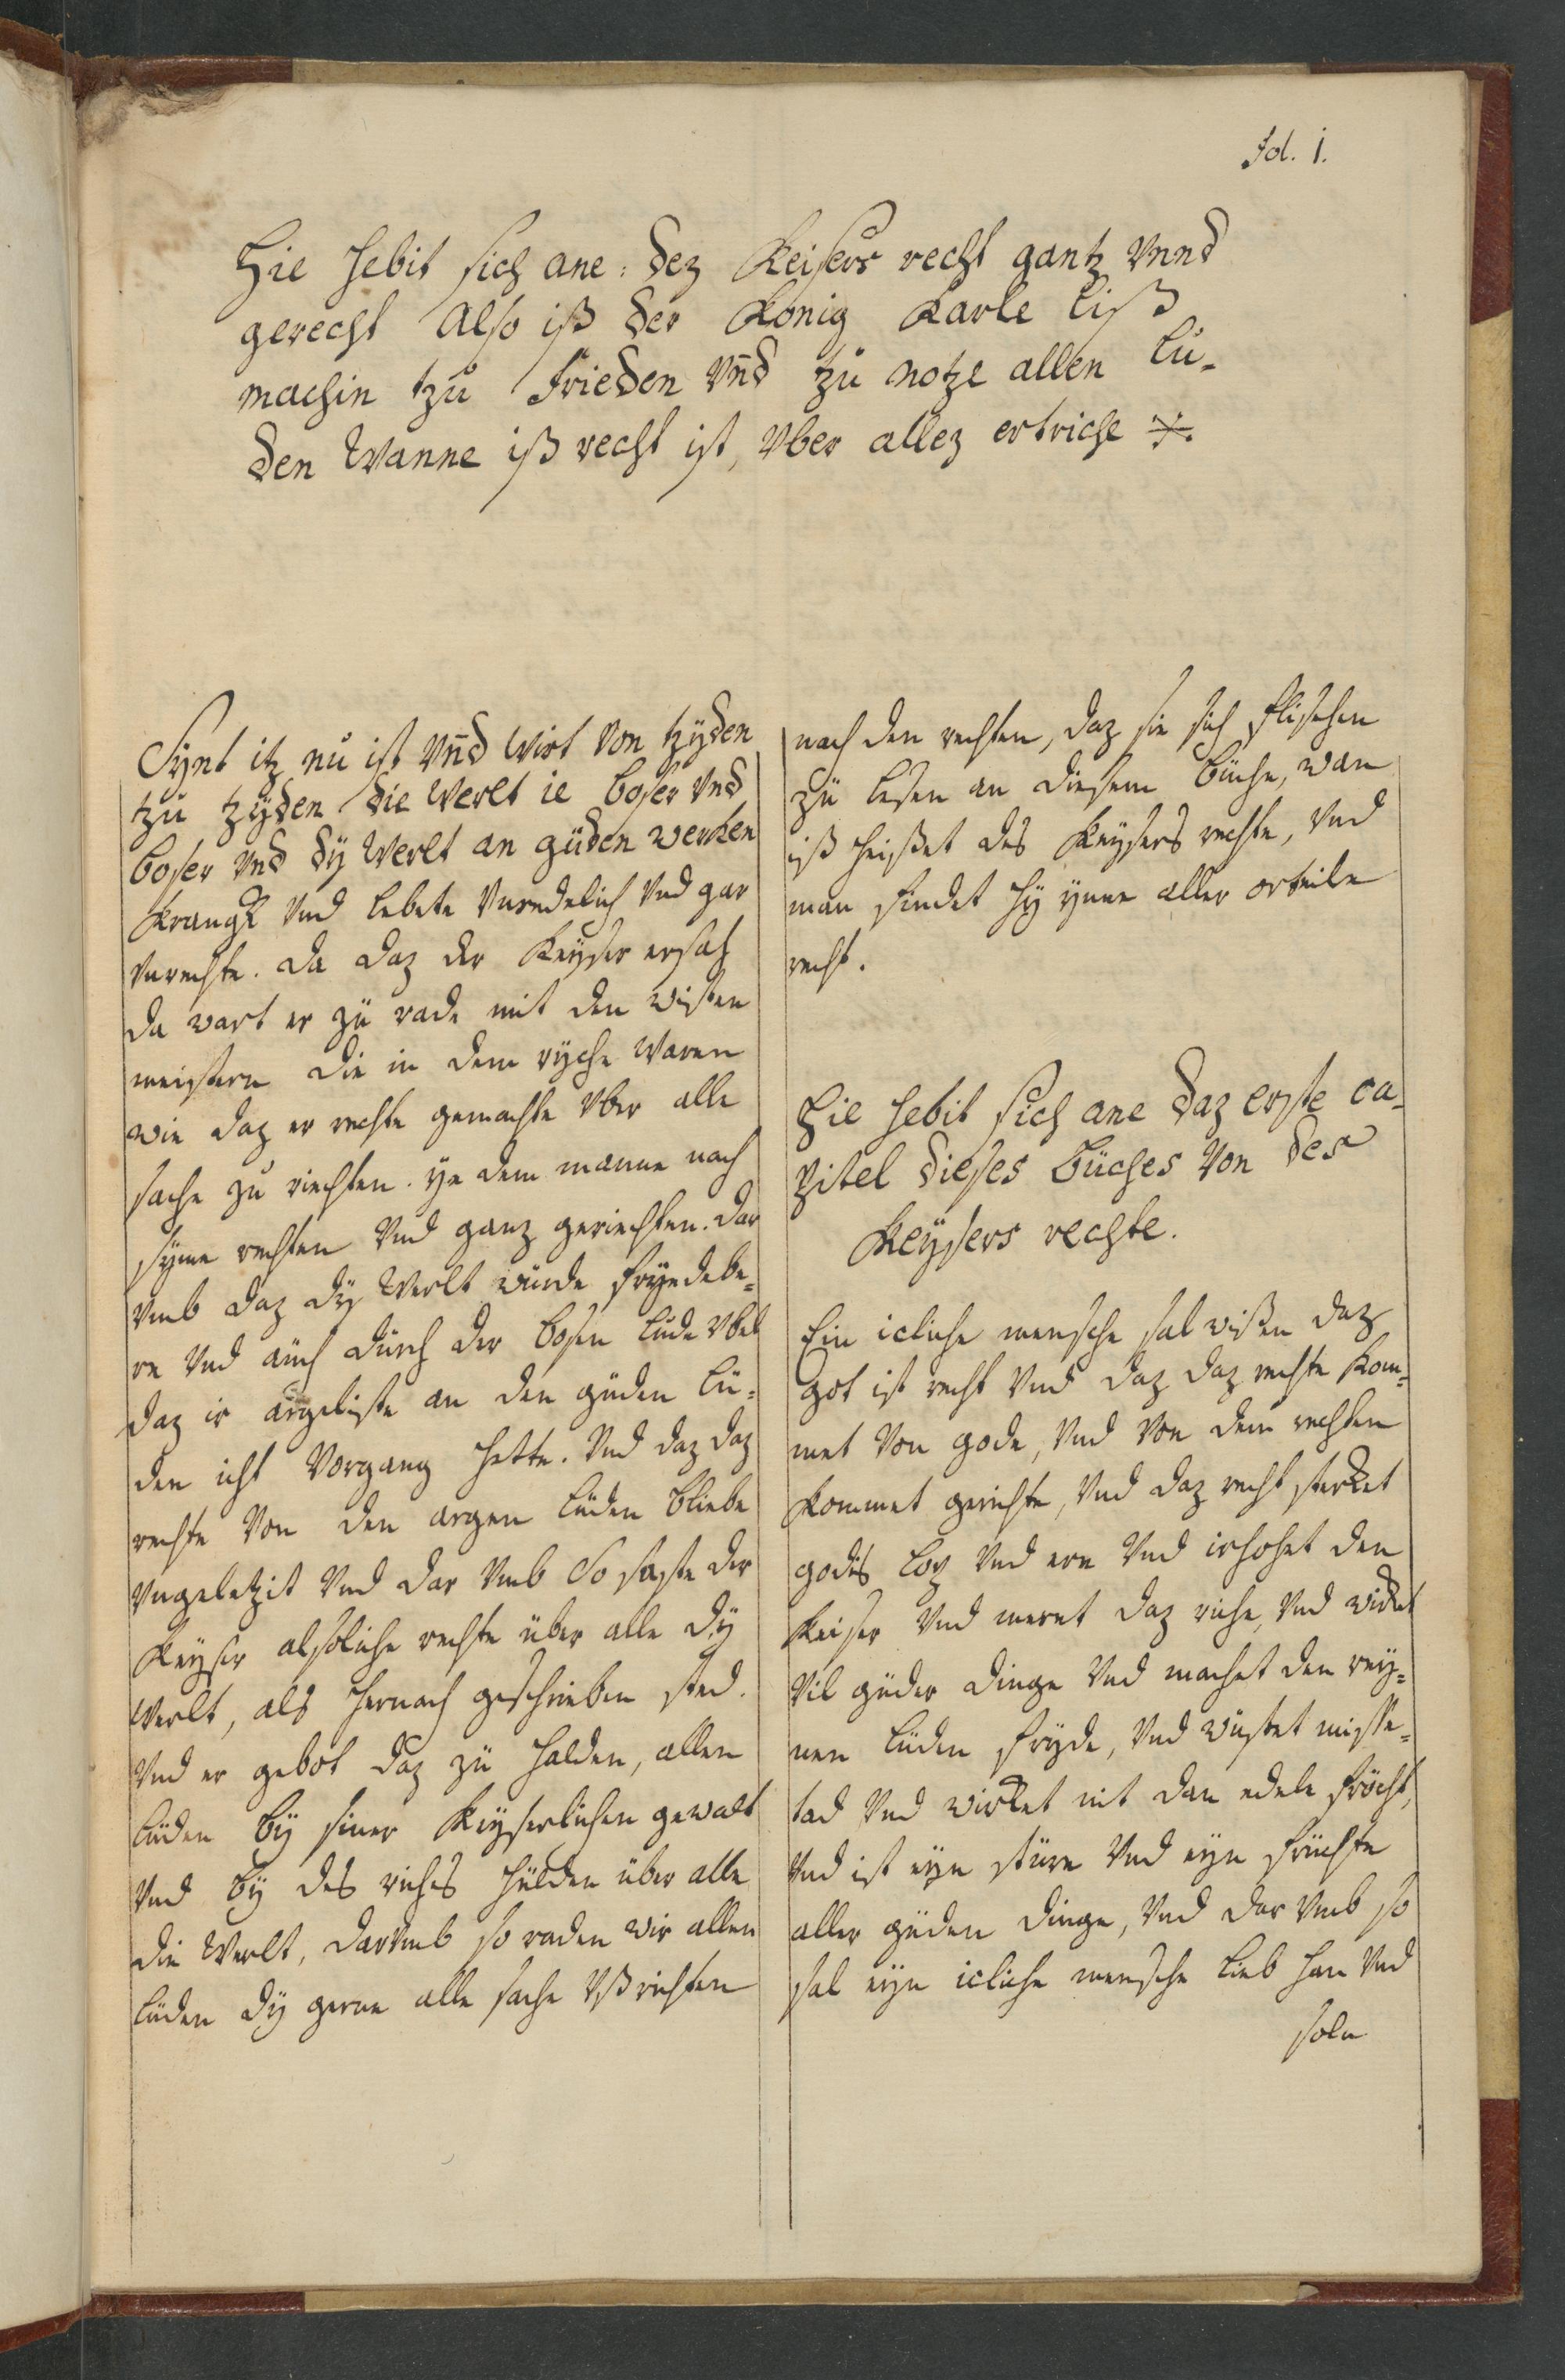 fol. 1.
Hie hebit sich ane: dez Keisers recht gantz vnnd
gerecht Also iß der König Karle liß
machin tzu Frieden vn̄d tzu notze allen lu-
den Wanne iß recht ist, vber allez ertriche
Synt itz nu ist vn̄d wirt von tzÿden
tzu tzÿden die werlt ie boser vnd
boser vnd dÿ werlt an guden werken
krangk vnd lebete vnredelich vnd gar
vnrechte. da daz der Keÿser ersah
da wart er zu rade mit den wisten
meistern die in dem rÿche waren
wie daz er rechte gemachte vber alle
sache zu riechten. ÿe dem manne nach
sÿme rechten vnd ganz geriechten. dar
vmb daz dÿ werlt wurde fryedebe=
re vnd auch durch der bosen lude vbel
daz ir argeliste an den guden lu=
den icht vorgang hette. vnd daz daz
rechte von den argen luden bliebe
vngeletzit vnd dar vmb So saste der
Keÿser alsoliche rechte uber alle dÿ
werlt, als hernach geschrieben sted.
vnd er gebot daz zu halden, allen
luden bÿ siner Keÿserlichen gewalt
vnd bÿ des riches hulden uber alle
die werlt, darvmb so raden wir allen
luden dÿ gerne alle sache vßrichten
nach den rechten, daz sie sich flischen
zu lesen an diesem buche, wan
iß heißet des Keÿsers rechte, vnd
man findet hÿ ÿnne aller orteile
recht.
Hie hebit sich ane daz erste ca-
pitel dieses buches von des
Keÿsers rechte.
Ein icliche mensche sal wißen daz
got ist recht vnd daz daz rechte kom=
met von gode, vnd von dem rechten
kommet gerichte, vnd daz recht sterket
godes lop vnd ere vnd irhohet den
Keiser vnd meret daz riche, vnd wirket
vil guder dinge vnd machet den reÿ=
nen luden fryde, vnd wustet misse=
tad vnd wirket nit dan edele frocht,
vnd ist eÿn sture vnd eÿn fruchte
aller guden dinge, vnd dar vmb so
sal eÿn icliche mensche lieb han vnd
soln